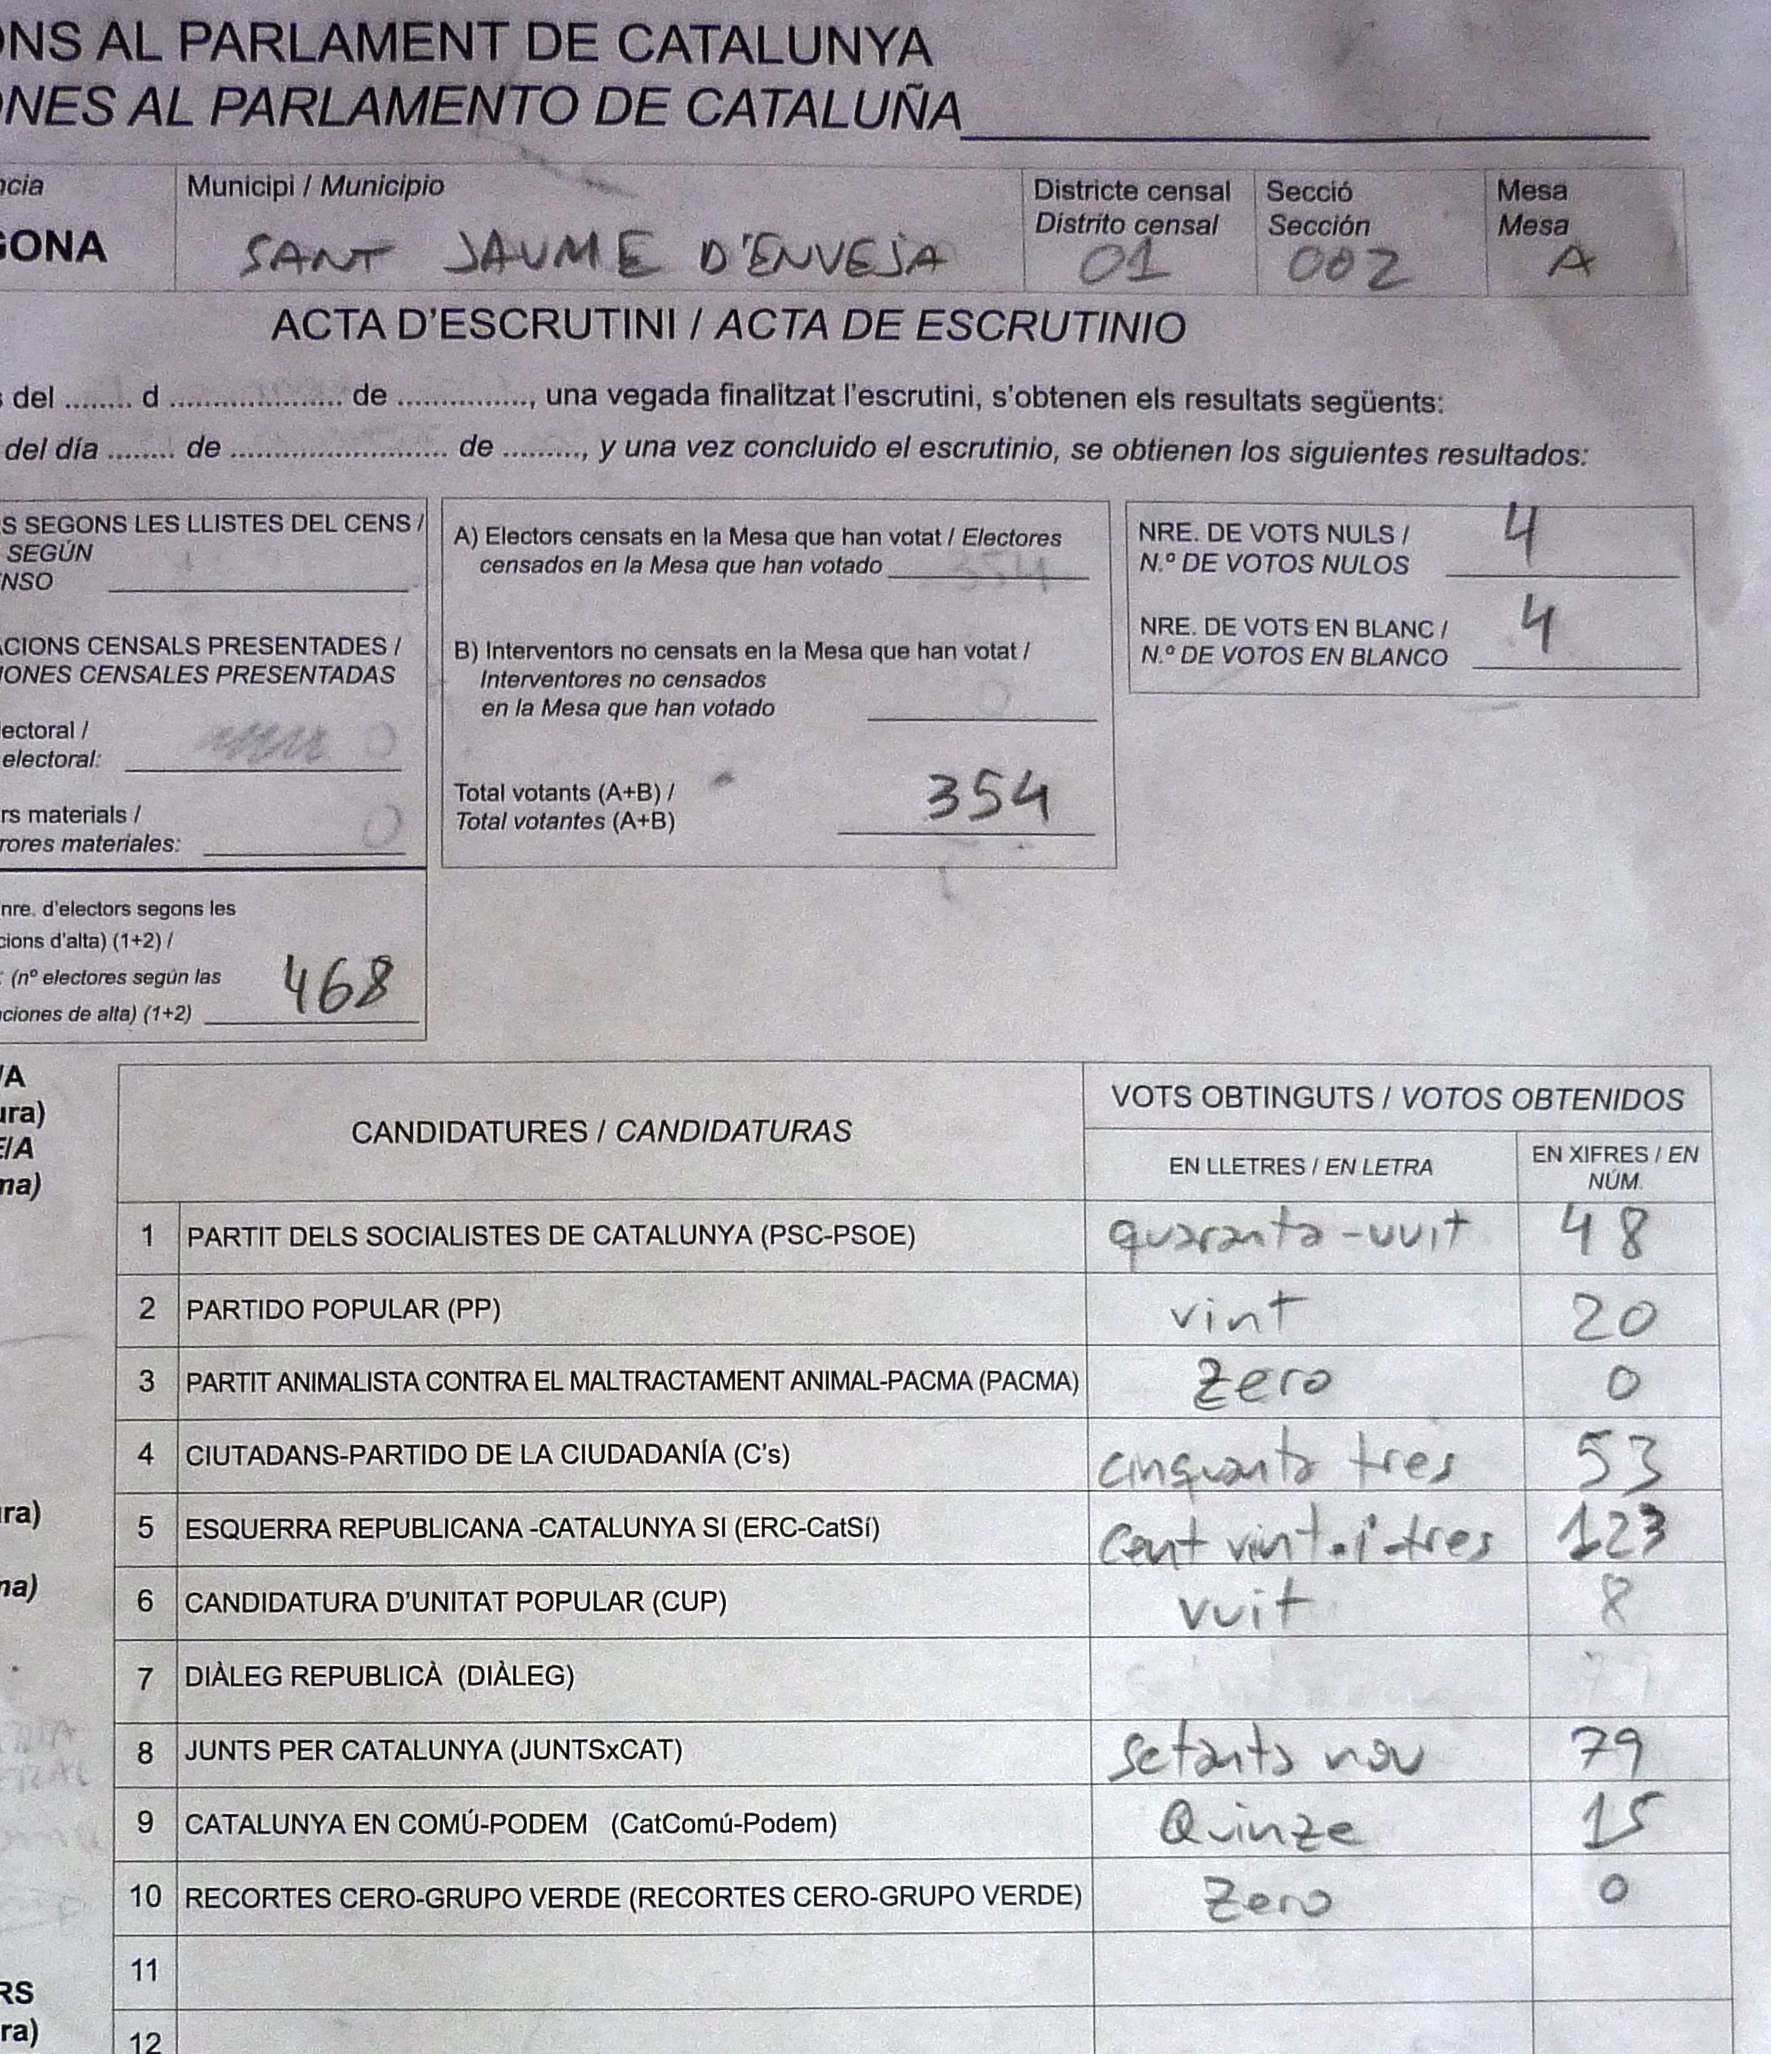 ONS AL PARLAMENT DE CATALUNYA
ONES AL PARLAMENTO DE CATALUÑA
ncia
GONA
Municipi / Municipio
SANT JAUME D'ENVEJA
Districte censal
Distrito censal
01
Secció
Sección
002
Mesa
Mesa
A
ACTA D'ESCRUTINI / ACTA DE ESCRUTINIO
s del ........ d .................... de ..............., una vegada finalitzat l'escrutini, s'obtenen els resultats següents:
del día ........ de ......................... de ........., y una vez concluido el escrutinio, se obtienen los siguientes resultados:
S SEGONS LES LLISTES DEL CENS /
SEGÚN
NSO
ACIONS CENSALS PRESENTADES /
IONES CENSALES PRESENTADAS
lectoral /
electoral: 0
rs materials /
rores materiales: 0
nre. d'electors segons les
cions d'alta) (1+2) /
: (nº electores según las
ciones de alta) (1+2) 468
A) Electors censats en la Mesa que han votat / Electores
censados en la Mesa que han votado 354
B) Interventors no censats en la Mesa que han votat /
Interventores no censados
en la Mesa que han votado 0
Total votants (A+B) /
Total votantes (A+B) 354
NRE. DE VOTS NULS /
N.º DE VOTOS NULOS 4
NRE. DE VOTS EN BLANC /
N.º DE VOTOS EN BLANCO 4
/A
ura)
E/A
ma)
ra)
na)
RS
ra)
CANDIDATURES / CANDIDATURAS
VOTS OBTINGUTS / VOTOS OBTENIDOS
EN LLETRES / EN LETRA
EN XIFRES / EN
NÚM.
1 PARTIT DELS SOCIALISTES DE CATALUNYA (PSC-PSOE) quaranta-vuit 48
2 PARTIDO POPULAR (PP) vint 20
3 PARTIT ANIMALISTA CONTRA EL MALTRACTAMENT ANIMAL-PACMA (PACMA) Zero 0
4 CIUTADANS-PARTIDO DE LA CIUDADANÍA (C's) cinquanta tres 53
5 ESQUERRA REPUBLICANA -CATALUNYA SI (ERC-CatSí) Cent vint-i-tres 123
6 CANDIDATURA D'UNITAT POPULAR (CUP) vuit 8
7 DIÀLEG REPUBLICÀ (DIÀLEG)
8 JUNTS PER CATALUNYA (JUNTSxCAT) setanta nou 79
9 CATALUNYA EN COMÚ-PODEM (CatComú-Podem) Quinze 15
10 RECORTES CERO-GRUPO VERDE (RECORTES CERO-GRUPO VERDE) Zero 0
11
12